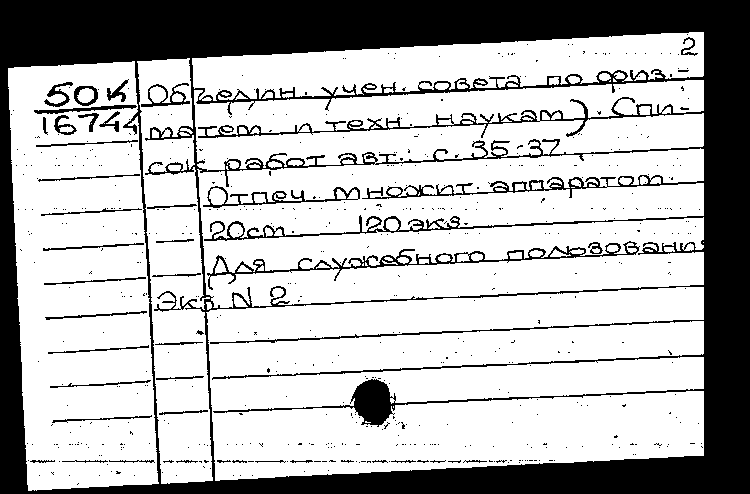 2
50К Объедин. учен. совета по физ.-
16744 матем. и техн. наукам). Спи-
сок работ авт.: с. 35-37.
Отпеч. множит. аппаратом.
20 cm. 120 экз.
Для служебного пользования
Экз. N 2.